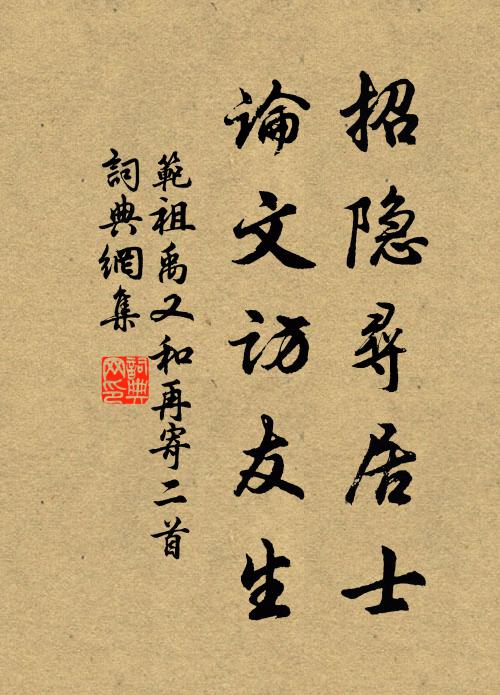 招隐尋居士
論文访友生
範祖禹又和再寄二首
詞典網集
詞典网印